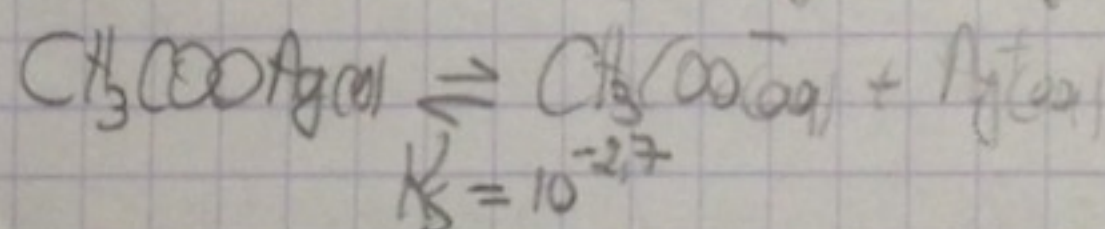 CH₃COOAg(s) ⇌ CH₃COO⁻(aq) + Ag⁺(aq)
Ks = 10⁻²,⁷